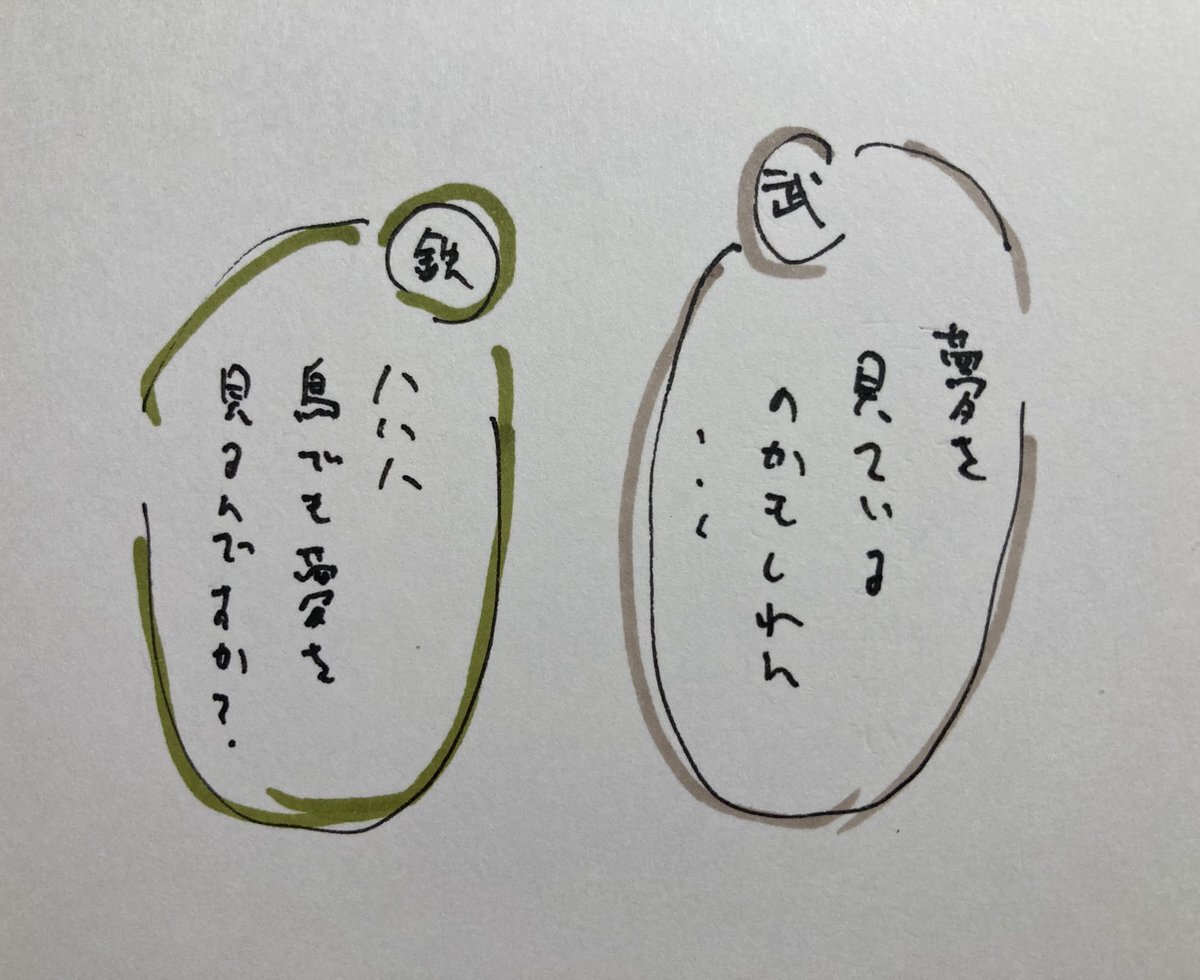 武
夢を
見ている
のかもしれん
・・・
鉄
ハハハ
鳥でも夢を
見るんですか?